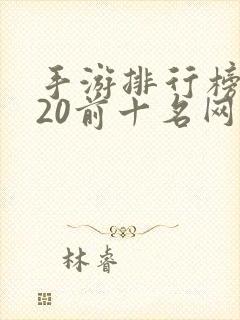 手游排行榜
20前十名网
林睿